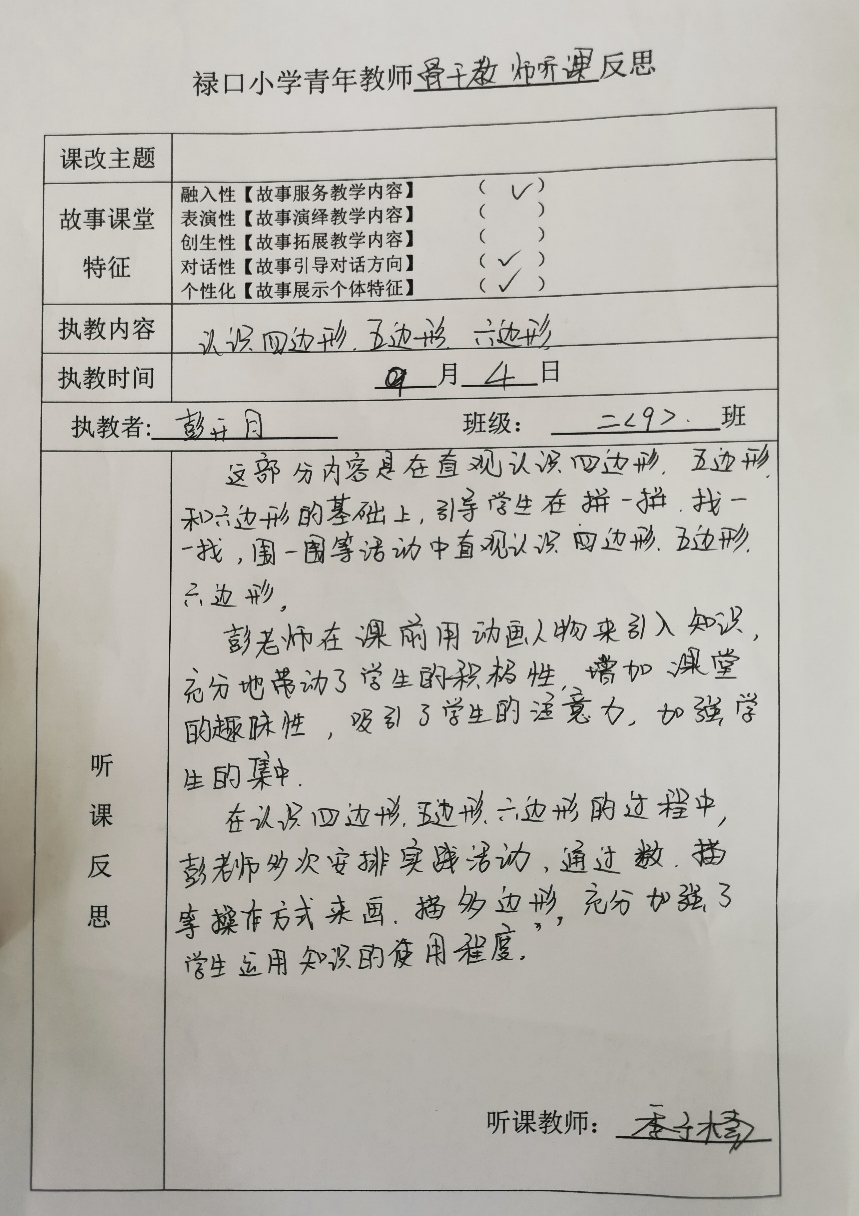 禄口小学青年教师骨干教师听课反思
课改主题
故事课堂
特征
融入性【故事服务教学内容】 ( ✓ )
表演性【故事演绎教学内容】 ( )
创生性【故事拓展教学内容】 ( )
对话性【故事引导对话方向】 ( ✓ )
个性化【故事展示个体特征】 ( ✓ )
执教内容 认识四边形、五边形、六边形
执教时间 9月4日
执教者: 彭 月 班级： 二<9>. 班
听
课
反
思
这部分内容是在直观认识四边形、五边形
和六边形的基础上，引导学生在拼一拼、找一
一找，围一围等活动中直观认识四边形、五边形、
六边形。
彭老师在课前用动画人物来引入知识，
充分地带动了学生的积极性，增加课堂
的趣味性，吸引了学生的注意力，加强学
生的集中.
在认识四边形、五边形、六边形的过程中，
彭老师多次安排实践活动，通过数、描
等操作方式来画、描多边形，充分加强了
学生运用知识的使用程度。
听课教师： 子